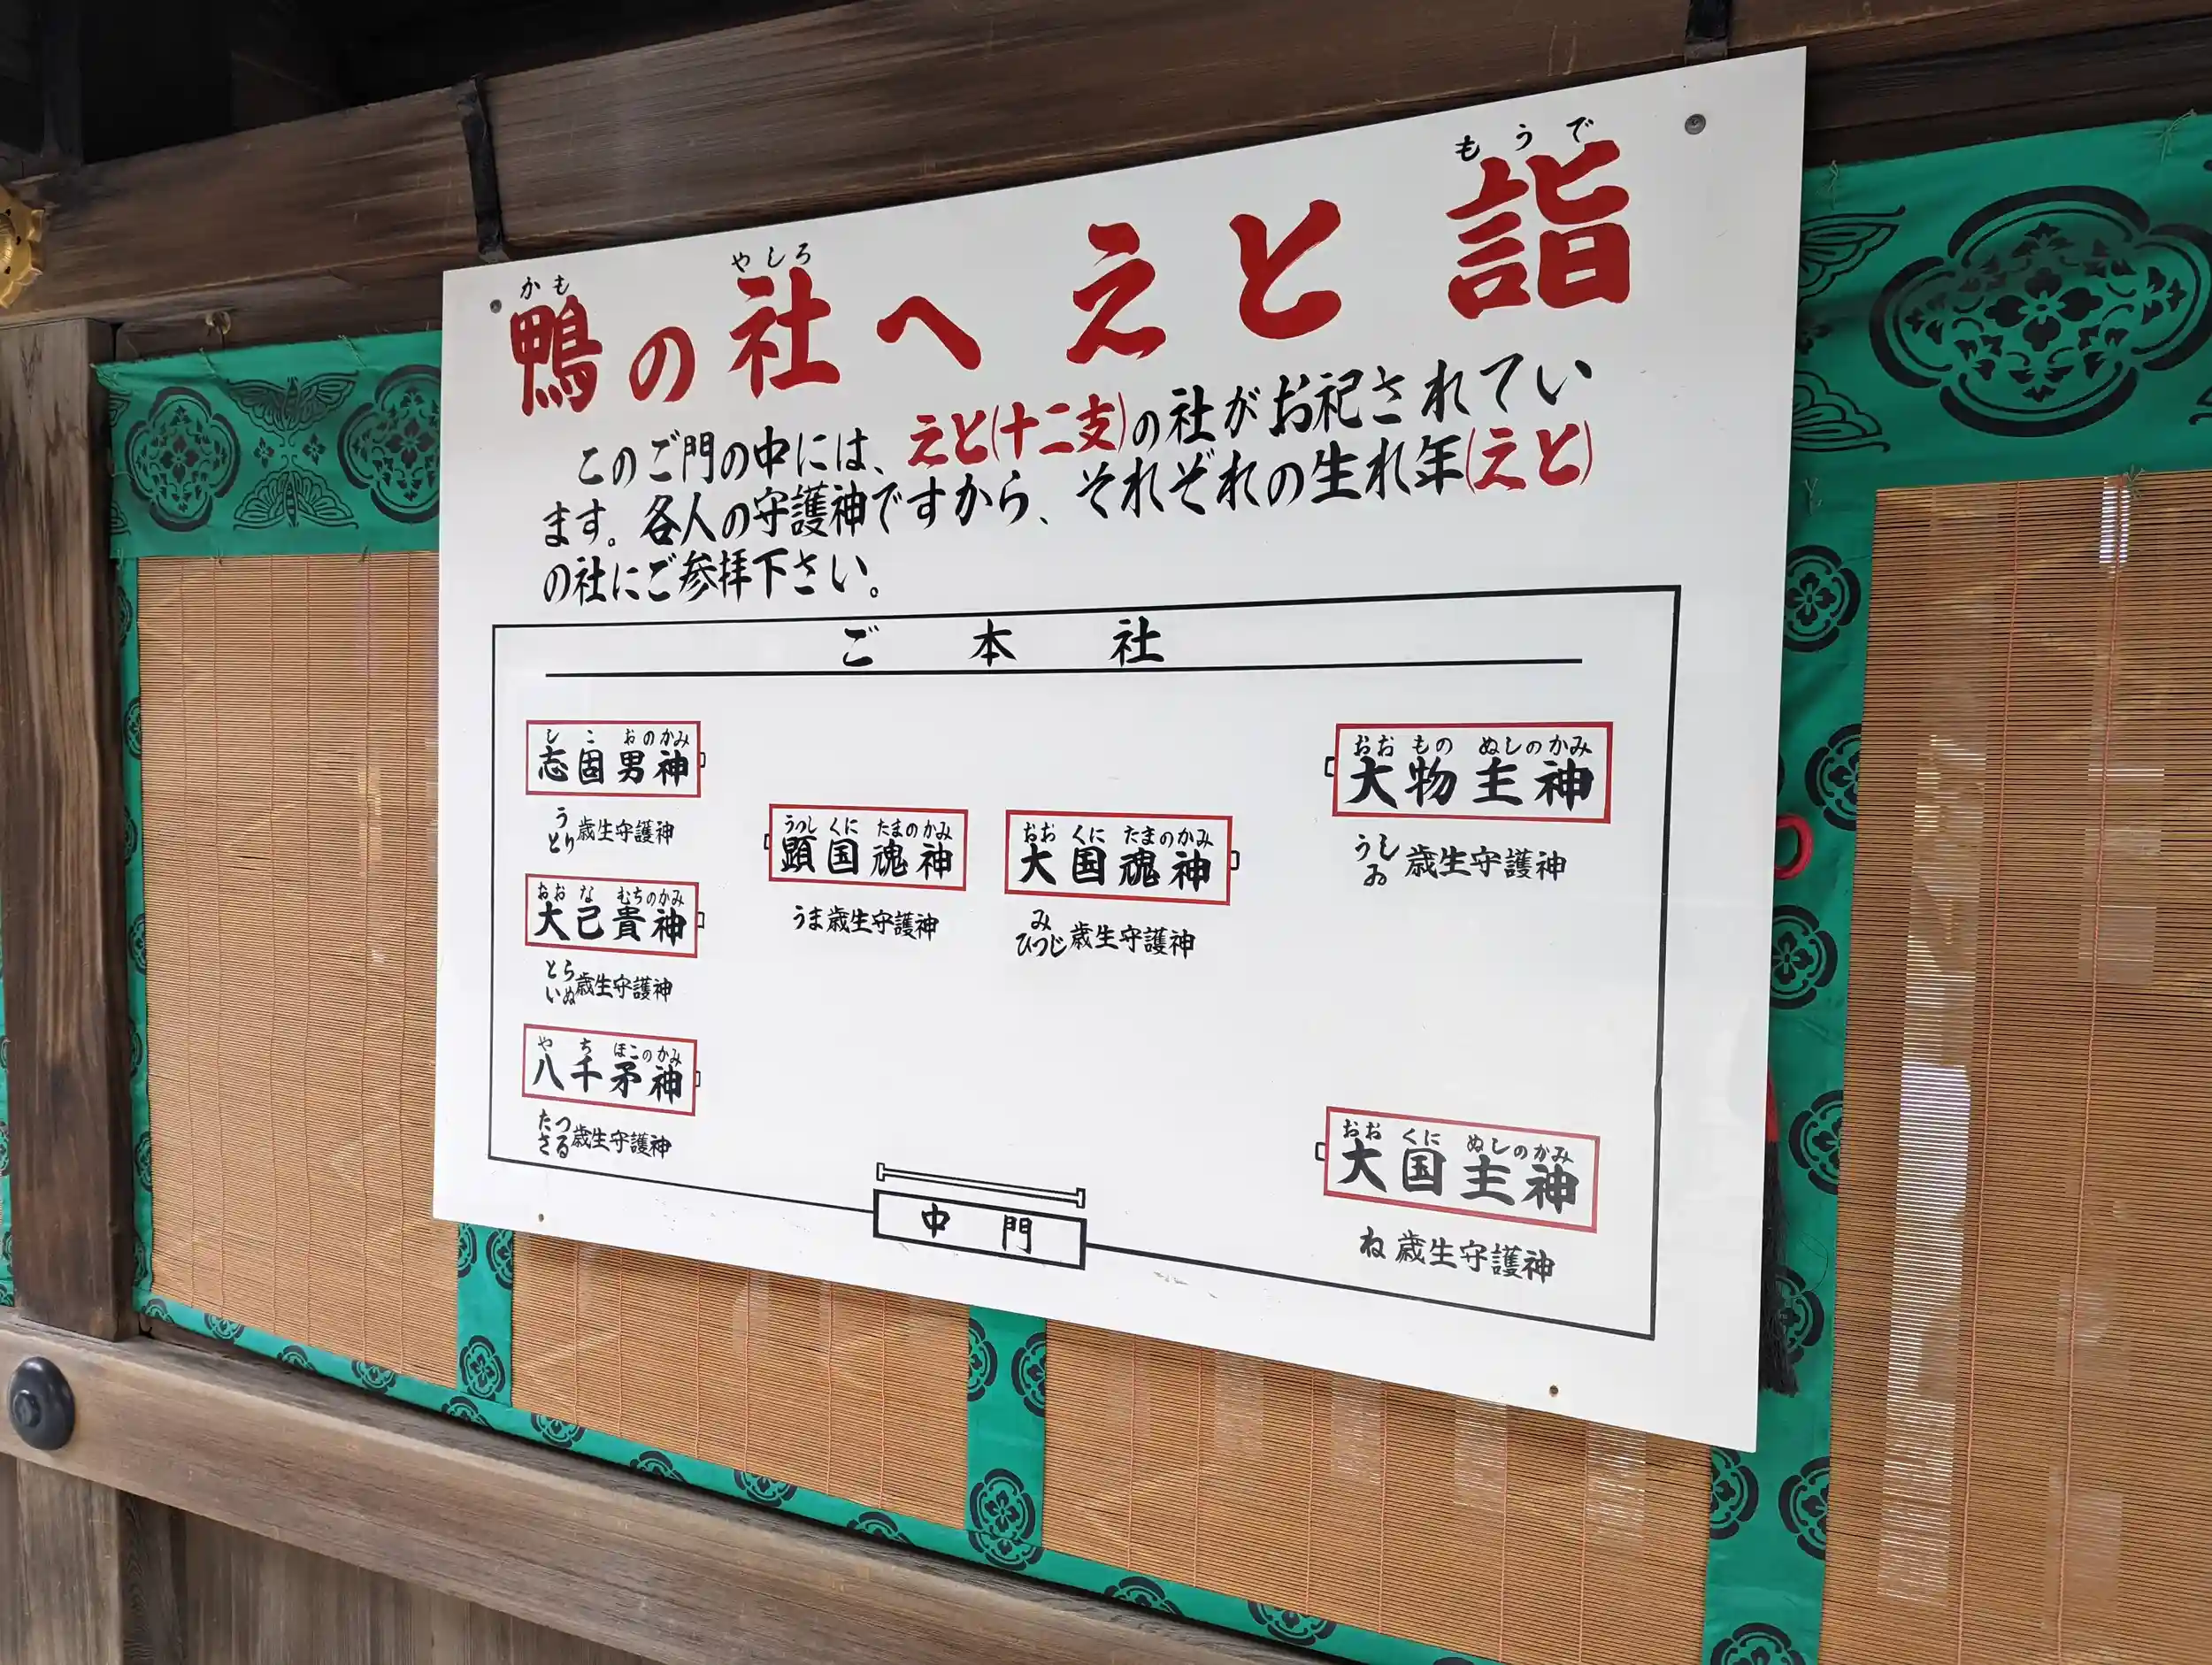 かも やしろ もうで
鴨の社へ えと 詣
このご門の中には、えと(十二支)の社がお祀されてい
ます。各人の守護神ですから、それぞれの生れ年(えと)
の社にご参拝下さい。
ご本社
しこおのかみ
志固男神
う
とり
歳生守護神
おおなむちのかみ
大己貴神
とら
いぬ
歳生守護神
やちほこのかみ
八千矛神
たつ
さる
歳生守護神
うつしくにたまのかみ
顕国魂神
うま歳生守護神
おおくにたまのかみ
大国魂神
み
ひつじ
歳生守護神
おおものぬしのかみ
大物主神
うし
ゐ
歳生守護神
おおくにぬしのかみ
大国主神
ね歳生守護神
中門